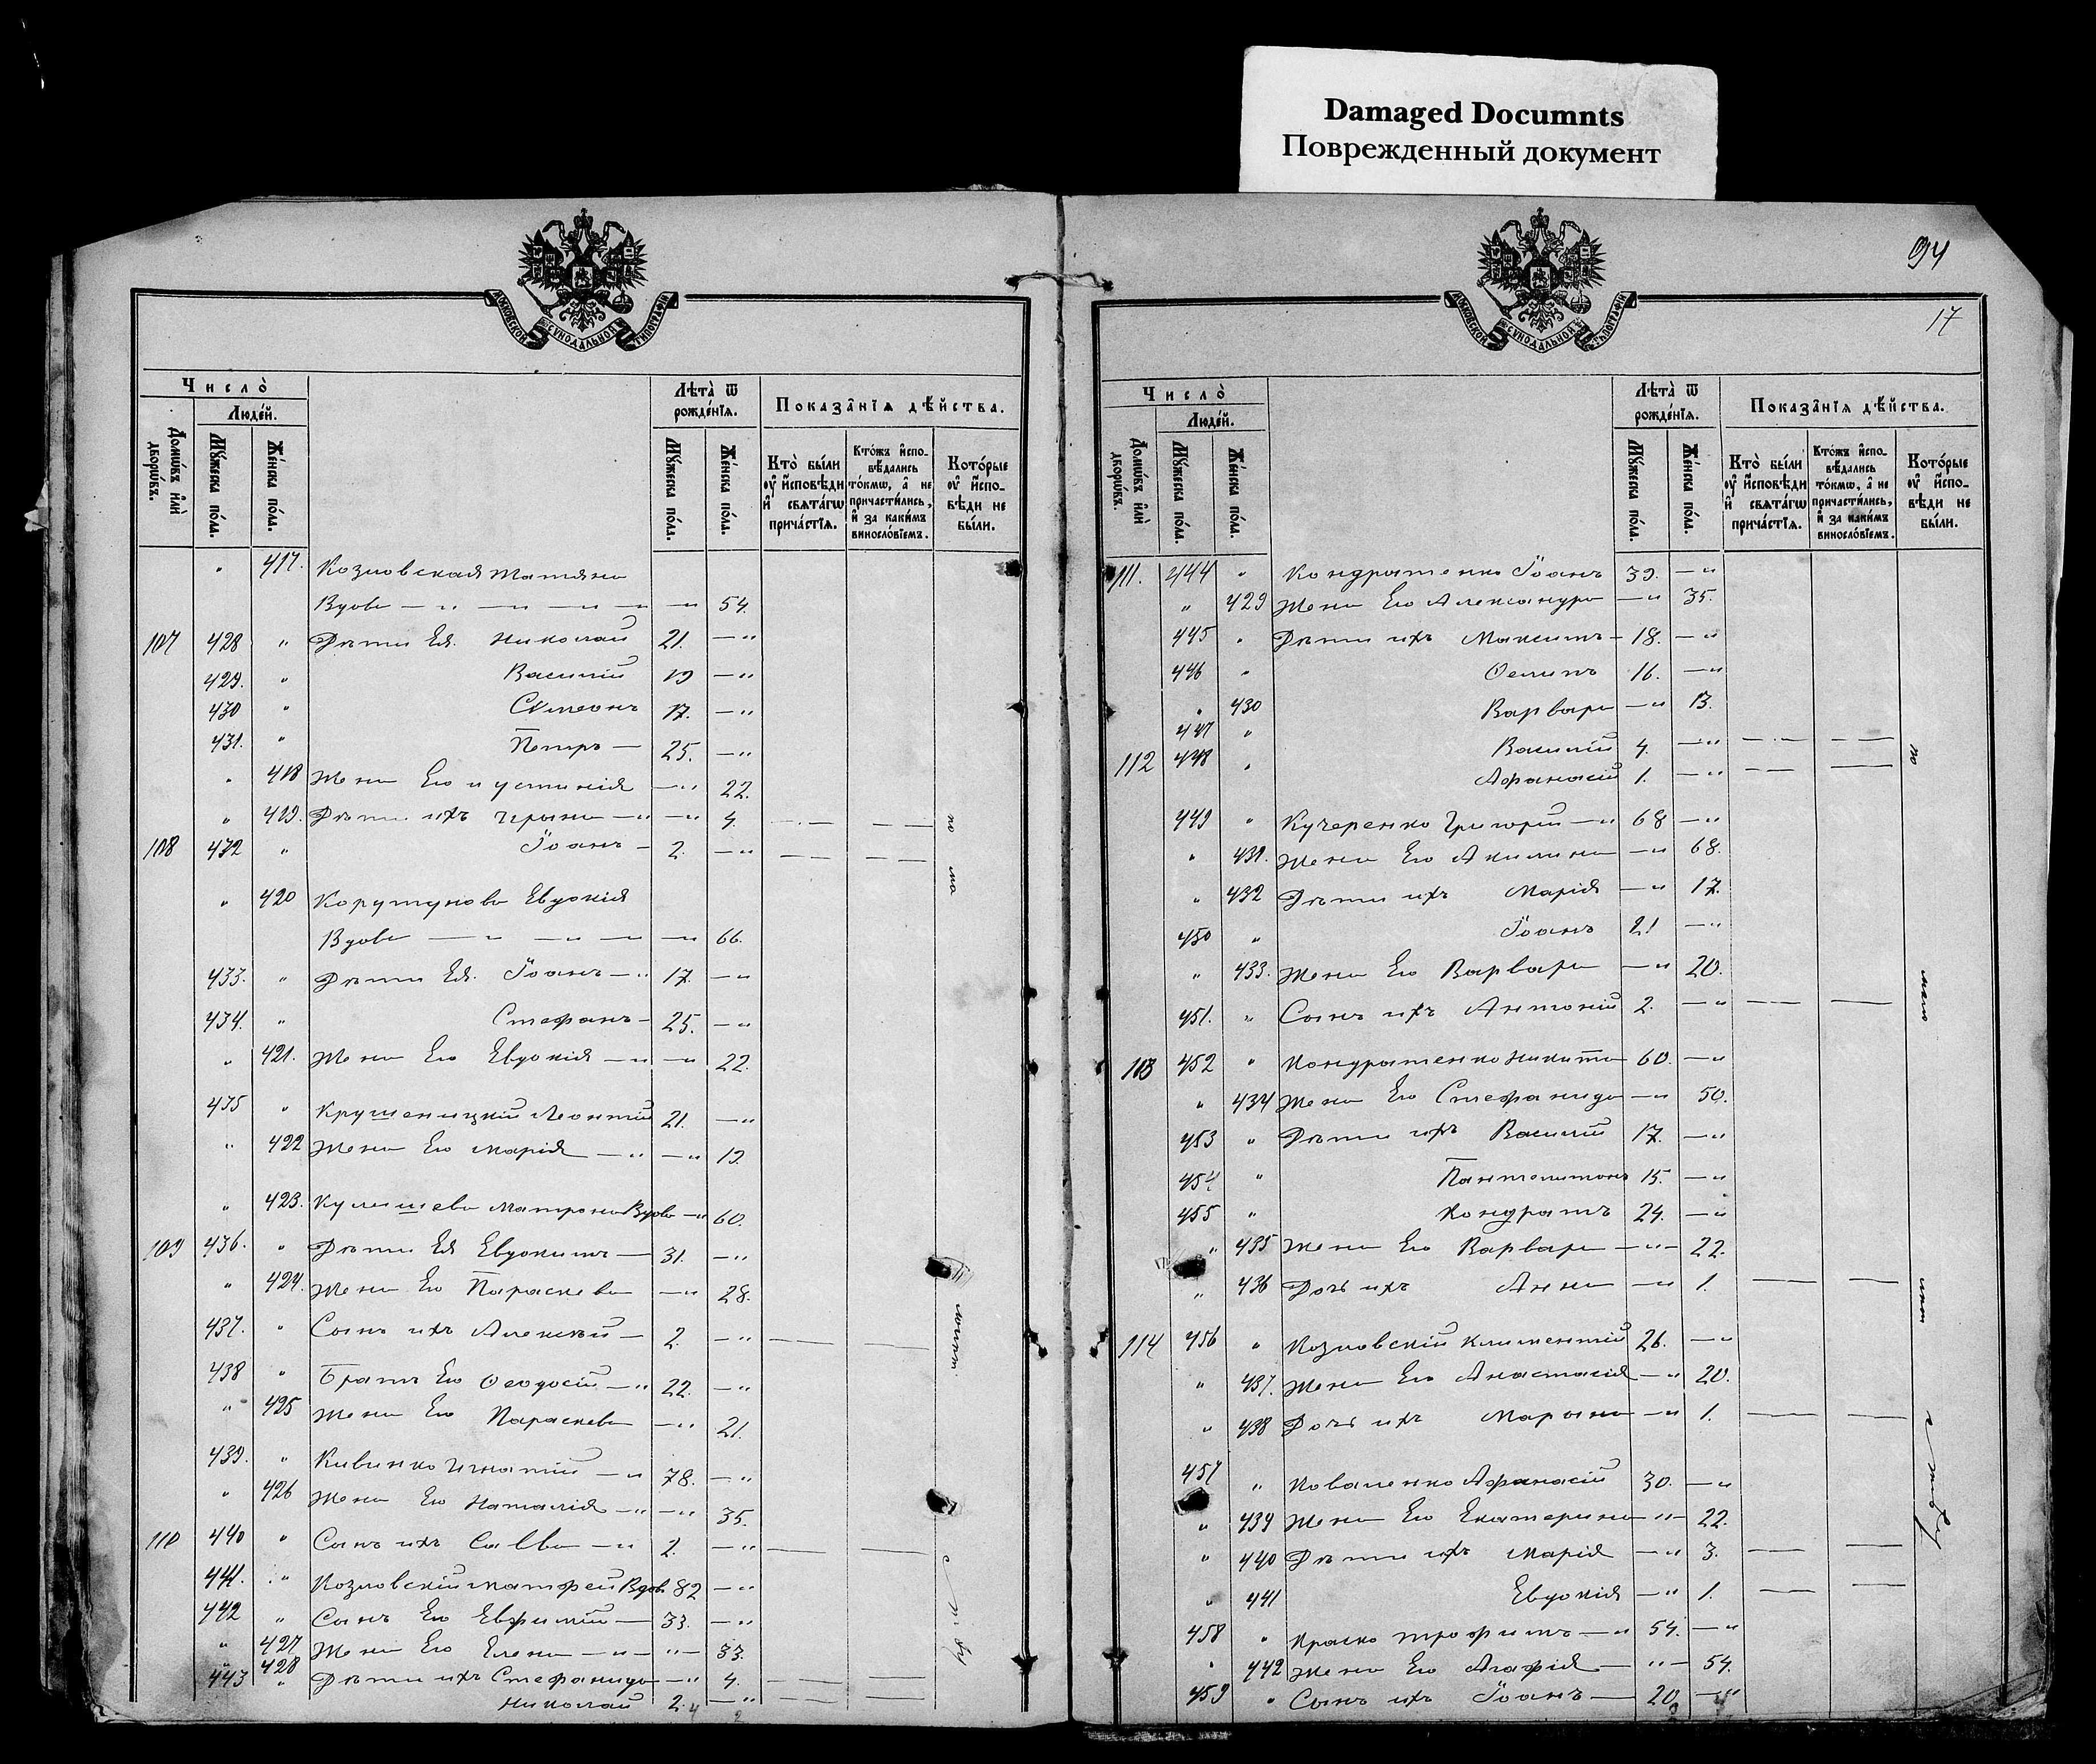 Damaged Documnts
Поврежденный документ
94
17
МОСКОВСКОЙ СУНОДАЛЬНОЙ ТЫПОГРАФІИ
Число̀
Людей.
Домѡвъ и҆лѝ дворѡвъ.
Мꙋжеска пола.
Женска пола.
Лѣта̀ ѿ рожденїѧ.
Мꙋжеска пола.
Женска пола.
Показанїѧ дѣйства.
Кто̀ были оу҆ и҆сповѣди и҆ свѧтагѡ причастїѧ.
Ктожъ и҆сповѣдались токмѡ, а҆ не причастились, и҆ за какимъ винословїемъ.
Которые оу҆ и҆сповѣди не были.
" 417. Козловская Татіяна
Вдова — " — " — " — " 54.
107 428 " Дѣти Ея. Николай 21. — "
429. " Василій 19 — "
430 " Симеонъ 17. — "
431. " Петръ — 25. — "
" 418 Жена Его Иустинія — " 22.
" 419. Дѣти ихъ Ирина — " — " 4. — —
108 432 " Іоанъ — 2. — " — —
" 420 Корутунова Евдокія
Вдова — " — " — — " 66.
433. " Дѣти Ея. Іоанъ — " 17. — "
434. " Стефанъ — 25. — "
" 421. Жена Его Евдокія — " — " 22.
435 " Крушеницкій Леонтій 21. — "
" 422 Жена Его Марія — " — " 19.
" 423. Кулишева Матрона Вдова — " 60.
109 436. " Дѣти Ея Евдокимъ — 31. — "
" 424. Жена Его Параскева — " 28.
437. " Сынъ ихъ Алексѣй — 2. — " — —
438 " Братъ Его Феодосій — " 22. — "
" 425 Жена Его Параскева — " 21.
439. " Кивинко Игнатій — " 78. — "
" 426 Жена Его Наталія — " — " 35.
110 440 " Сынъ ихъ Савва — " 2. — " — —
441. " Козловскій Матфей Вдов. 82 — "
442 " Сынъ Его Евфимій — 33. — "
" 427 Жена Его Елена — " — " — 33.
" 428 Дѣти ихъ Стефанида — " 4. — —
443 " Николай 2. — " — —
по
мало
лѣтст
Число̀
Людей.
Домѡвъ и҆лѝ дворѡвъ.
Мꙋжеска пола.
Женска пола.
Лѣта̀ ѿ рожденїѧ.
Мꙋжеска пола.
Женска пола.
Показанїѧ дѣйства.
Кто̀ были оу҆ и҆сповѣди и҆ свѧтагѡ причастїѧ.
Ктожъ и҆сповѣдались токмѡ, а҆ не причастились, и҆ за какимъ винословїемъ.
Которые оу҆ и҆сповѣди не были.
111. 444 " Кондратенко Іоанъ 39. — "
" 429 Жена Его Александра — " 35.
445 " Дѣти ихъ Максимъ — 18. — "
446 " Осипъ 16. — "
" 430 Варвара — " 13.
447 " Василій 4. — " — —
112 448 " Афанасій 1. — " — —
449 " Кучеренко Григорій — " 68 — "
" 431. Жена Его Акилина — " 68.
" 432 Дѣти ихъ Марія — " 17.
450 " Іоанъ 21 — "
" 433. Жена Его Варвара — " 20.
451. " Сынъ ихъ Антоній 2. — " — —
113 452 " Кондратенко Никита 60. — "
" 434 Жена Его Стефанида — " 50.
453 " Дѣти ихъ Василій 17. — "
454 " Пантелимонъ 15. — "
455 " Кондратъ 24. — "
" 435 Жена Его Варвара — " — 22.
" 436 Дочь ихъ Анна — " 1. — —
114 456 " Козловскій Климентій 26. — "
" 437. Жена Его Анастасія — " 20.
" 438 Дочь ихъ Марина — " 1. — —
457 " Коваленко Афанасій 30. — "
" 439 Жена Его Екатерина — " — 22.
" 440 Дѣти ихъ Марія — " 3. — —
" 441 Евдокія — " 1. — —
458 " Краско Трофимъ — " 54. — "
" 442 Жена Его Агафія — " — 54.
459 " Сынъ ихъ Іоанъ — 20. — "
по
мало